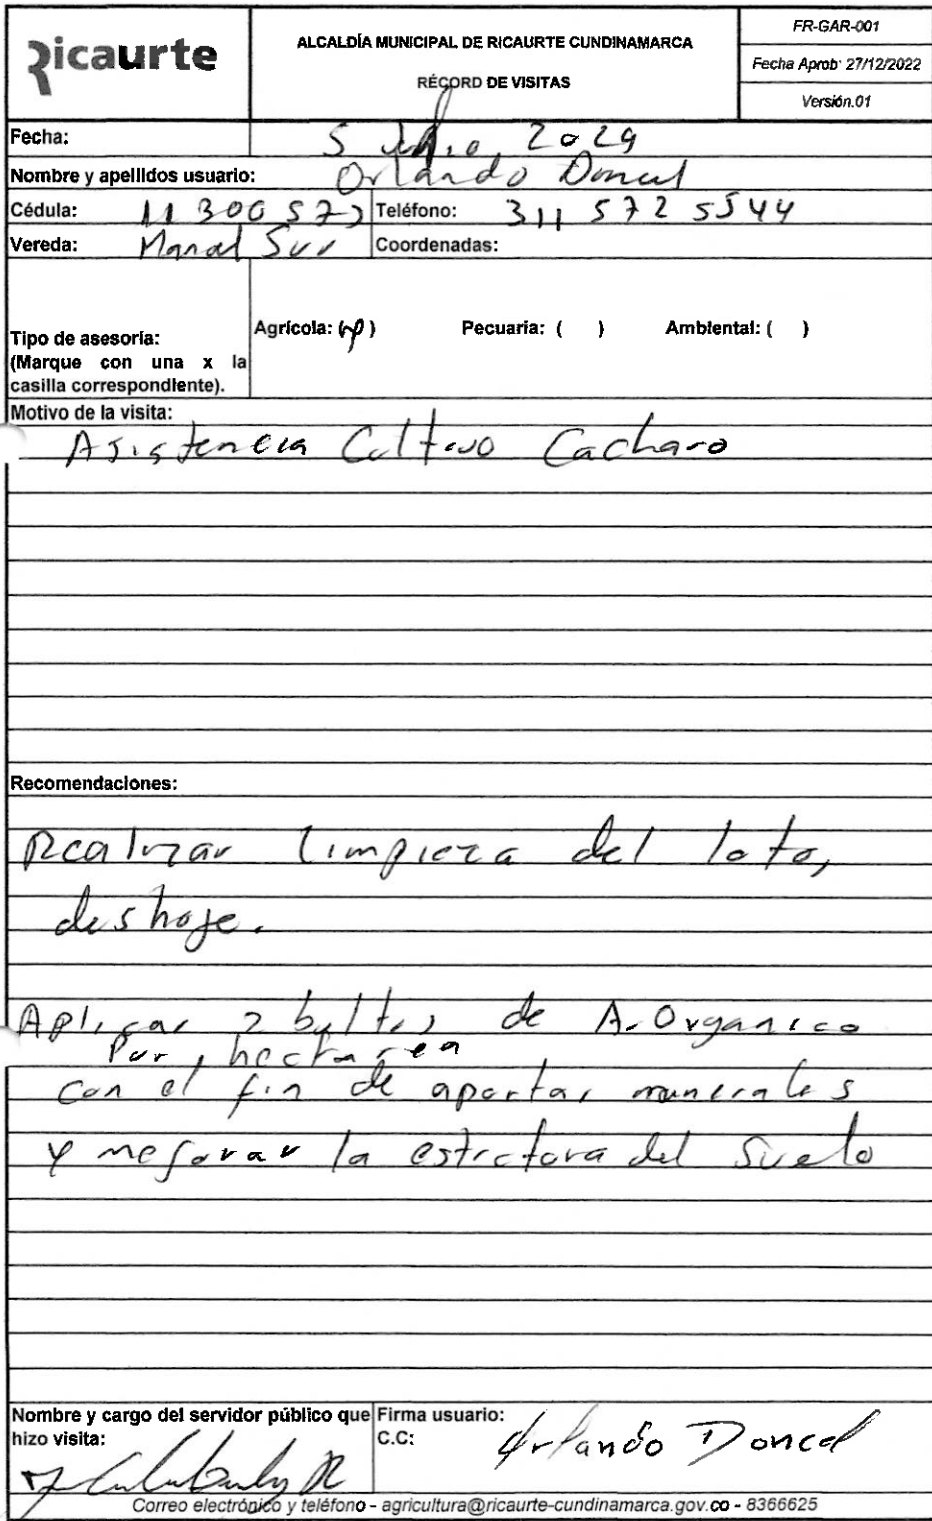 Ricaurte
ALCALDÍA MUNICIPAL DE RICAURTE CUNDINAMARCA
RÉCORD DE VISITAS
FR-GAR-001
Fecha Aprob: 27/12/2022
Versión.01
Fecha: 5 Julio 2024
Nombre y apellidos usuario: Orlando Doncel
Cédula: 11 300 573 Teléfono: 311 572 5544
Vereda: Manal Sur Coordenadas:
Tipo de asesoría:
(Marque con una x la
casilla correspondiente).
Agrícola: ( ) Pecuaria: ( ) Ambiental: ( )
Motivo de la visita:
Asistencia Cultivo Cacharo
Recomendaciones:
Realizar limpieza del lote,
deshoje.
Aplicar 2 bultos de A. Organico
Por hectarea
con el fin de aportar minerales
y mejorar la estructura del Suelo
Nombre y cargo del servidor público que
hizo visita:
Firma usuario:
C.C: Orlando Doncel
Correo electrónico y teléfono - agricultura@ricaurte-cundinamarca.gov.co - 8366625